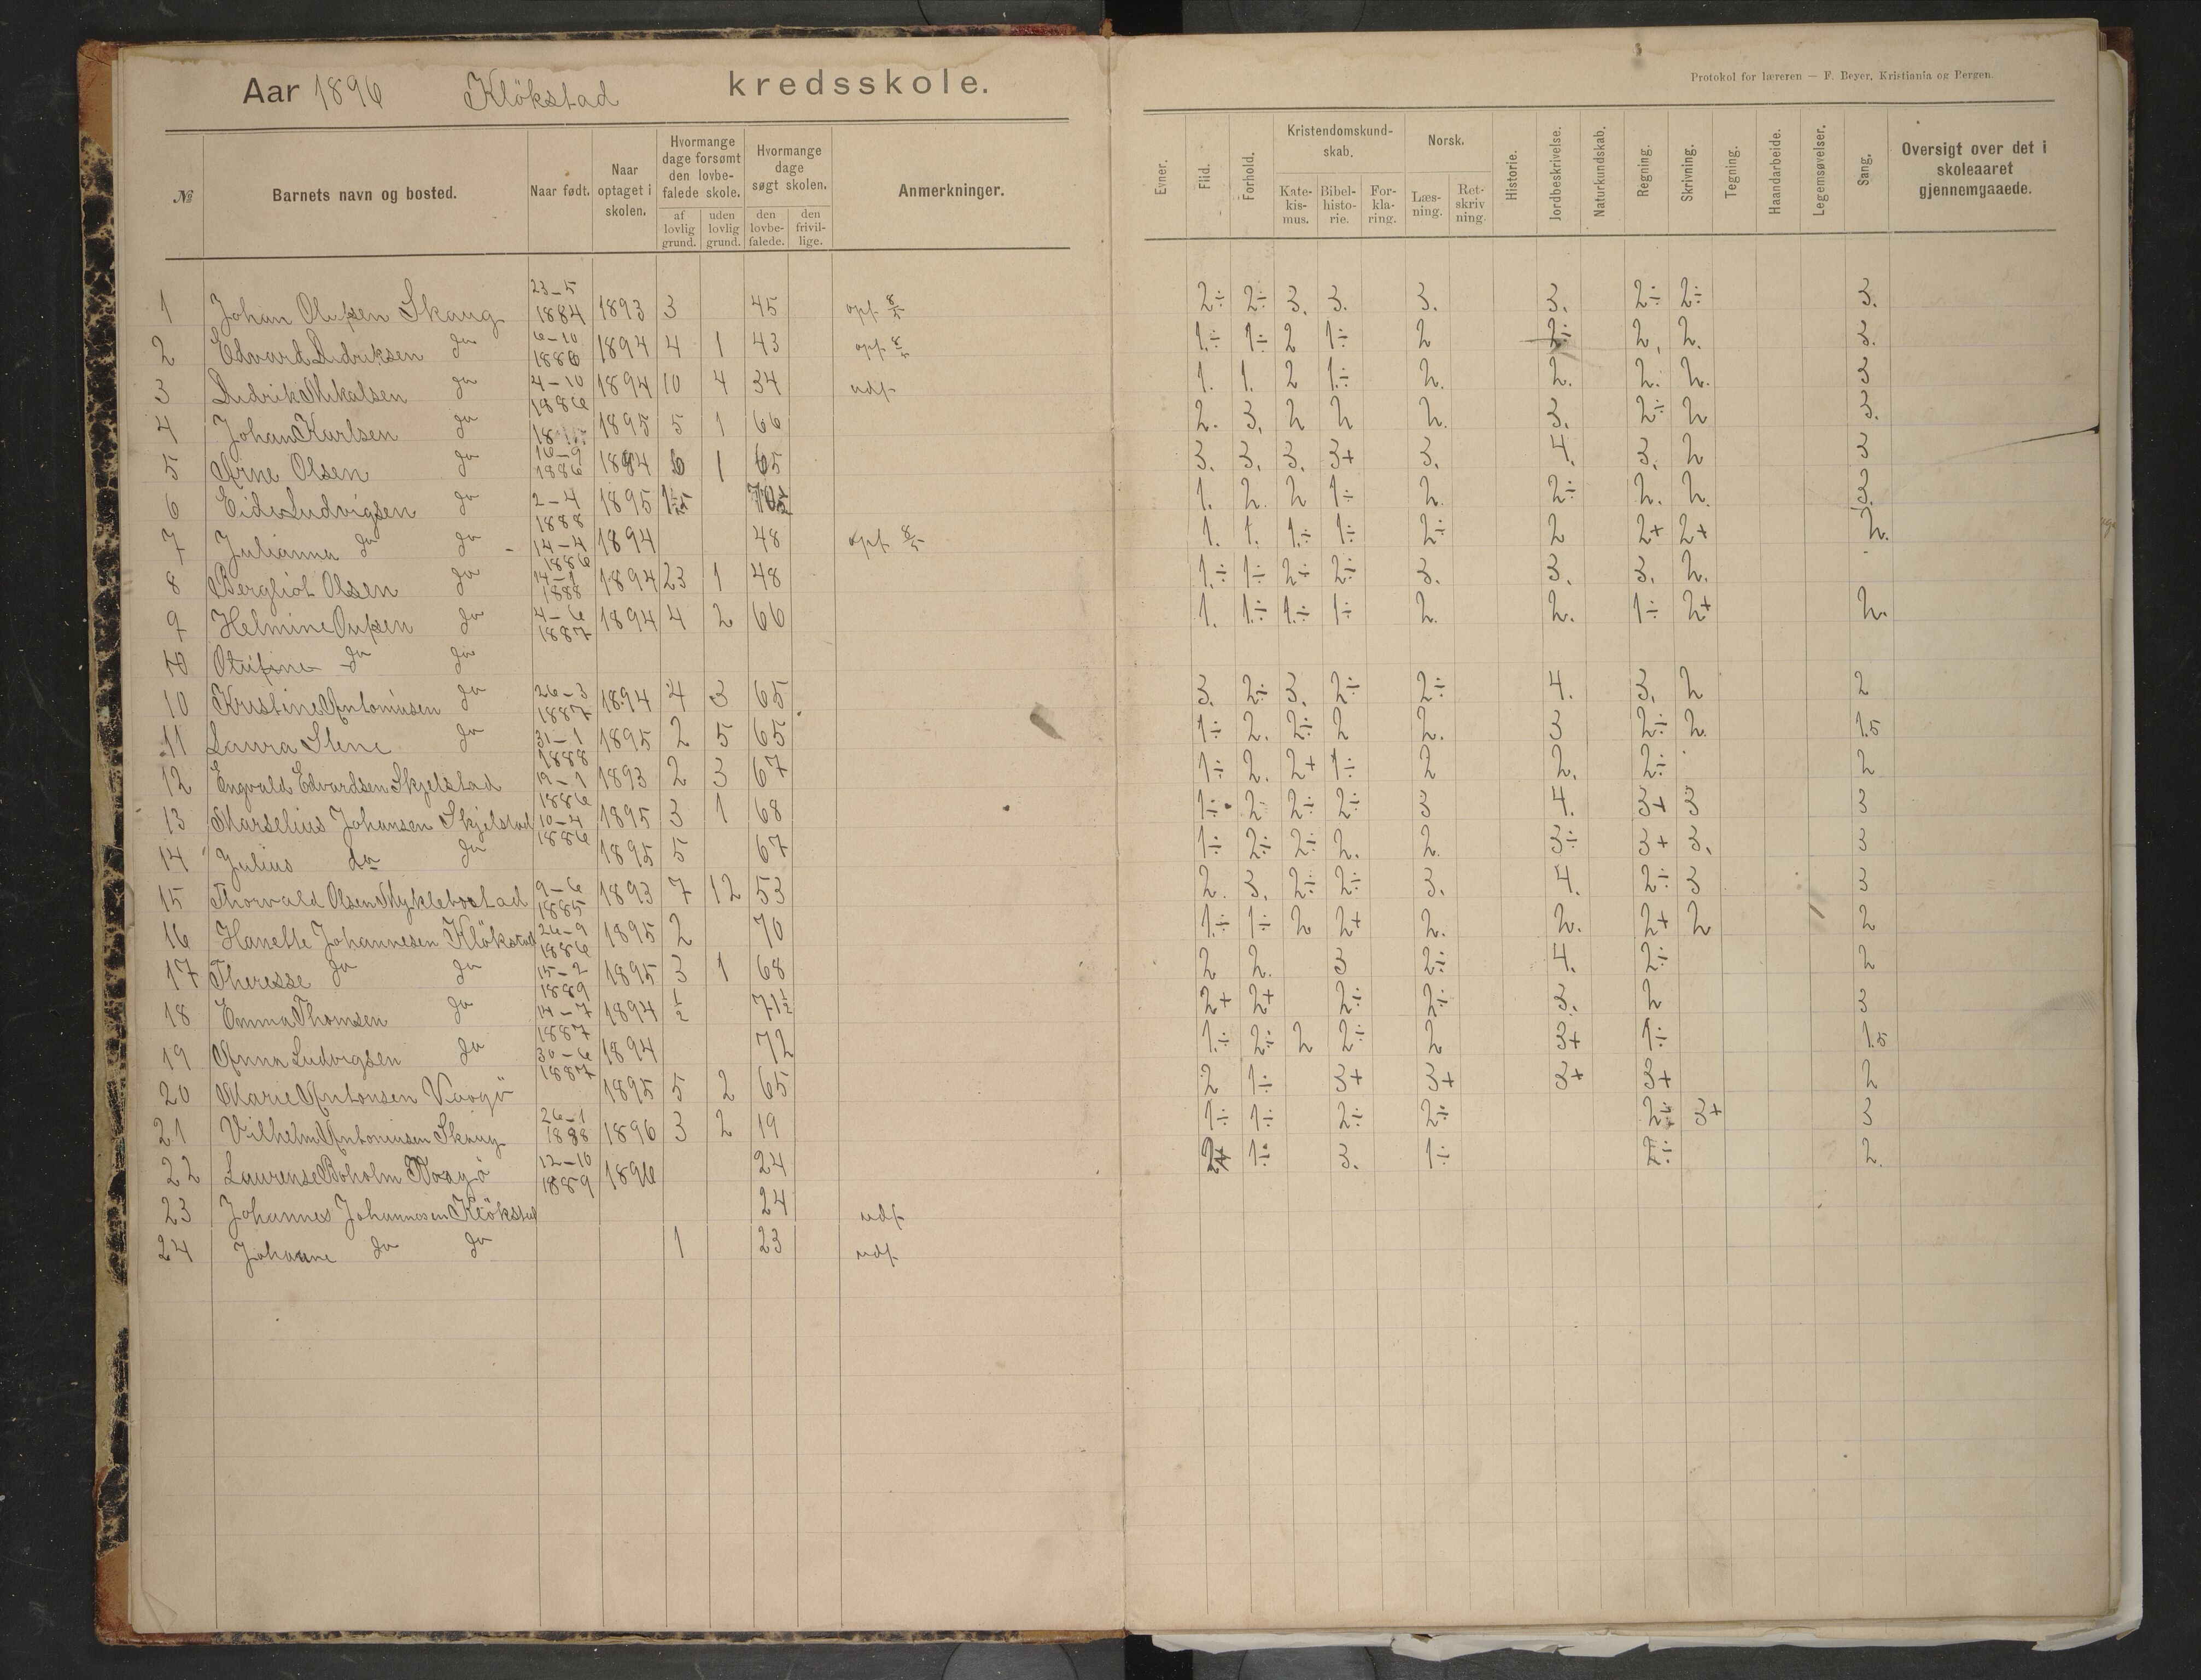 Aar 1896 Klökstad kredsskole.
Protokol for læreren — F. Beyer, Kristiania og Bergen.
№ Barnets navn og bosted. Naar født. Naar optaget i skolen. Hvormange dage forsømt den lovbefalede skole. af lovlig grund. uden lovlig grund. Hvormange dage søgt skolen. den lovbefalede. den frivillige. Anmerkninger.
Evner. Flid. Forhold. Kristendomskundskab. Katekismus. Bibelhistorie. Forklaring. Norsk. Læsning. Retskrivning. Historie. Jordbeskrivelse. Naturkundskab. Regning. Skrivning. Tegning. Haandarbeide. Legemsøvelser. Sang. Oversigt over det i skoleaaret gjennemgaaede.
1 Johan Olufsen Skaug 23-5 1884 1893 3 45 opf. 8/5 2÷ 2÷ 3. 3. 3. 3. 2÷ 2÷ 3.
2 Edvard Didriksen do 6-10 1886 1894 4 1 43 opf. 8/5 1.÷ 1÷ 2 1÷ 2 2÷ 2. 2. 3.
3 Didrik Mikalsen do 4-10 1886 1894 10 4 34 udf. 1. 1. 2 1.÷ 2. 2. 2. 2. 3
4 Johan Karlsen do 1895 5 1 66 2. 3. 2 2 2. 3. 2÷ 2 3.
5 Arne Olsen do 16-9 1886 1894 6 1 65 3. 3. 3. 3+ 3. 4. 3. 2 3
6 Eide Ludvigsen do 2-4 1888 1895 1. 2. 2 1÷ 2. 2÷ 2. 2. 3.
7 Julianna do do 14-4 1886 1894 48 opf. 8/5 1. 1. 1.÷ 1÷ 2÷ 2 2+ 2+ 2.
8 Bergliot Olsen do 14-1 1888 1894 23 1 48 1.÷ 1÷ 2÷ 2÷ 3. 3. 3. 2.
9 Helmine Olufsen do 4-6 1887 1894 4 2 66 1. 1.÷ 1.÷ 1÷ 2. 2. 1÷ 2+ 2.
10 do do
10 Kristine Antoniusen do 26-3 1887 1894 4 3 65 3. 2÷ 3. 2÷ 2÷ 4. 3. 2 2
11 Laura Stene do 31-1 1888 1895 2 5 65 1÷ 2. 2÷ 2 2. 3 2÷ 2. 1.5
12 Engvald Edvardsen Skjelstad 19-1 1886 1893 2 3 67 1÷ 2. 2+ 1÷ 2 2. 2÷ 2
13 Marselius Johansen Skjelstad 10-4 1886 1895 3 1 68 1÷ 2 2÷ 2÷ 3 4. 3+ 3 3
14 Julius do do 1895 5 67 1÷ 2÷ 2÷ 2. 2. 3÷ 3+ 3. 3
15 Thorvald Olsen Myklebostad 9-6 1885 1893 7 12 53 2. 3. 2÷ 2÷ 3. 4. 2÷ 3 3
16 Hanette Johannesen Klökstad 26-9 1886 1895 2 70 1.÷ 1÷ 2 2+ 2. 2. 2+ 2 2
17 Theresse do do 15-2 1889 1895 3 1 68 2 2. 3 2÷ 4. 2÷ 2
18 Emma Thomsen do 14-7 1887 1894 ½ 71½ 2+ 2+ 2÷ 2÷ 3. 2 3
19 Anna Ludvigsen do 30-6 1887 1894 72 1.÷ 2÷ 2 2÷ 2 3+ 1÷ 1.5
20 Marie Antonsen Vaagö 1895 5 2 65 2 1÷ 3+ 3+ 3+ 3+ 2
21 Vilhelm Antoniusen Skaug 26-1 1888 1896 3 2 19 1÷ 1÷ 2÷ 2÷ 2÷ 3+ 3
22 Laurense Boholm Vaagö 12-10 1889 1896 24 2+ 1÷ 3. 1÷ 2÷ 2.
23 Johannes Johannesen Klökstad 24 udf.
24 Johanne do do 1 23 udf.